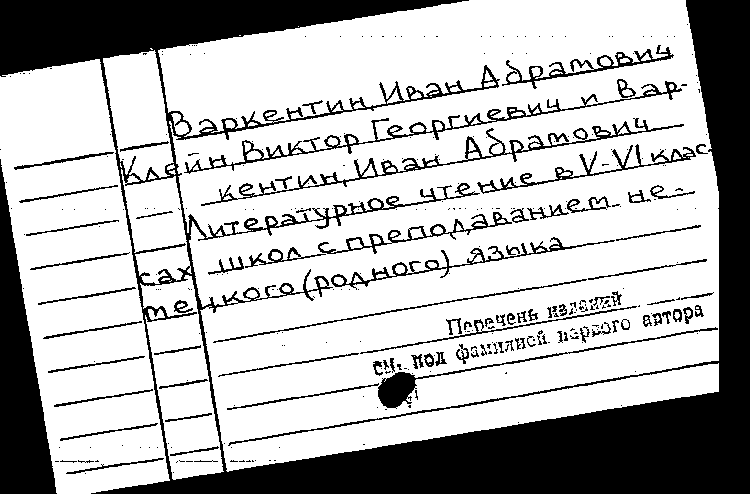 Варкентин, Иван Абрамович
Клейн, Виктор Георгиевич и Вар-
кентин, Иван Абрамович
Литературное чтение в V-VI клас-
сах школ с преподаванием не-
мецкого (родного) языка
Перечень изданий
см. под фамилией первого автора